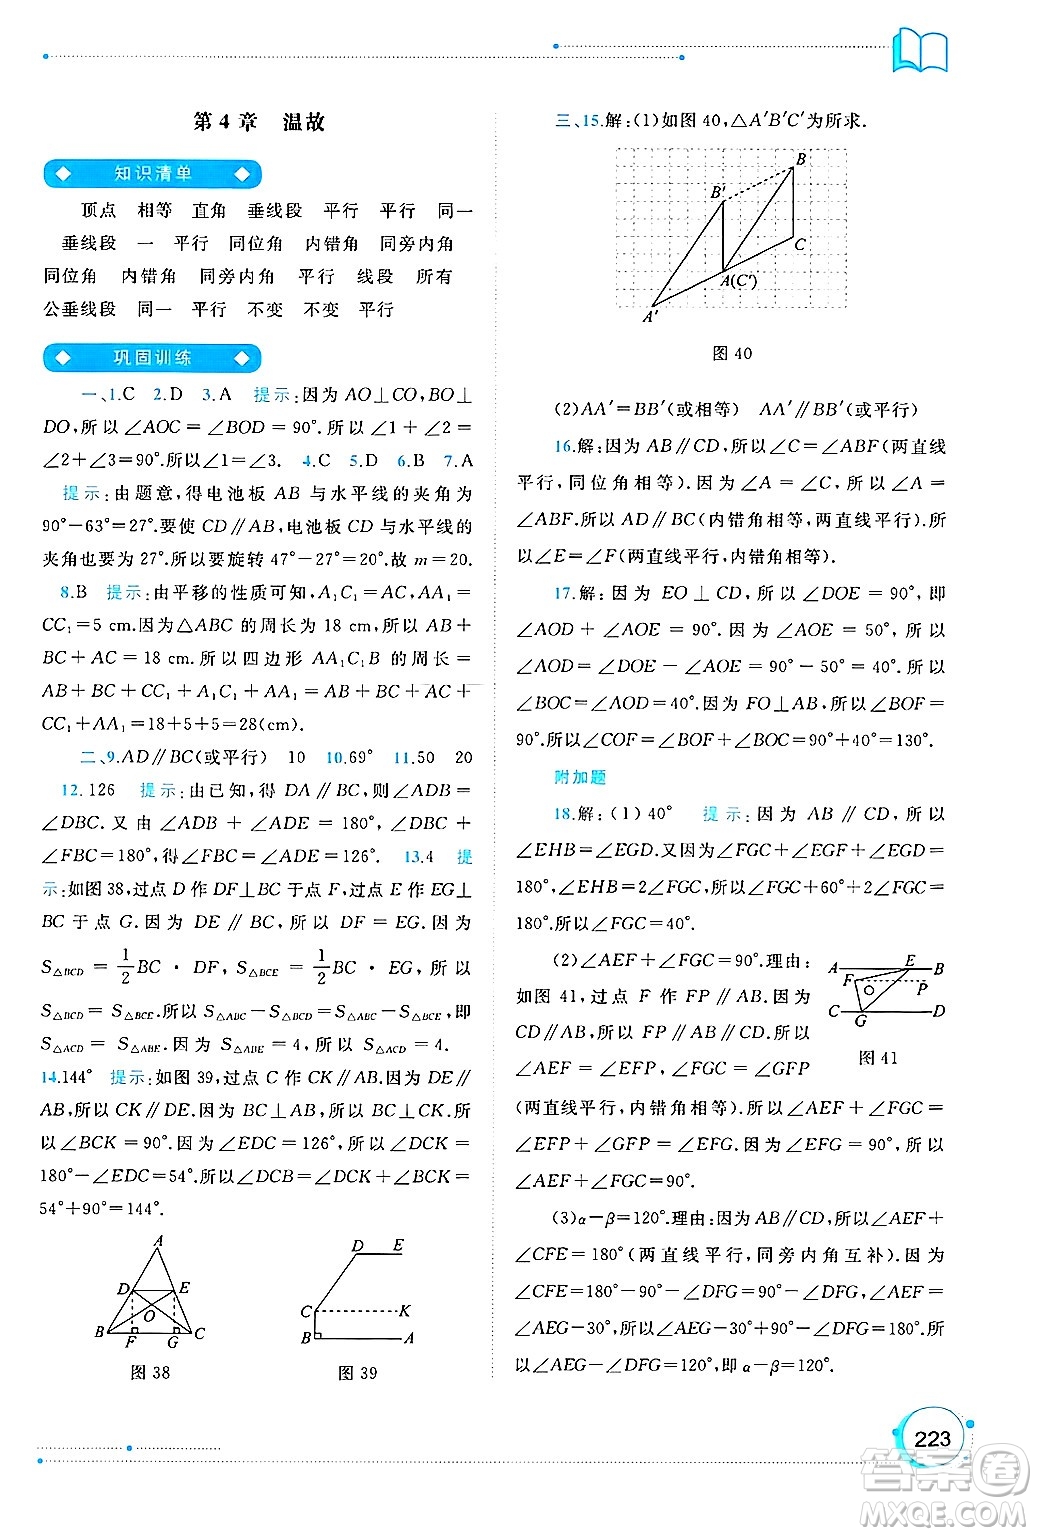 第4章 温故
知识清单
顶点 相等 直角 垂线段 平行 平行 同一
垂线段 一 平行 同位角 内错角 同旁内角
同位角 内错角 同旁内角 平行 线段 所有
公垂线段 同一 平行 不变 不变 平行
巩固训练
一、1.C 2.D 3.A 提示:因为 AO⊥CO,BO⊥
DO,所以∠AOC=∠BOD=90°.所以∠1+∠2=
∠2+∠3=90°.所以∠1=∠3. 4.C 5.D 6.B 7.A
提示:由题意,得电池板 AB 与水平线的夹角为
90°-63°=27°.要使 CD∥AB,电池板 CD 与水平线的
夹角也要为 27°.所以要旋转 47°-27°=20°.故 m=20.
8.B 提示:由平移的性质可知,A₁C₁=AC,AA₁=
CC₁=5 cm.因为△ABC 的周长为 18 cm,所以 AB+
BC+AC=18 cm.所以四边形 AA₁C₁B 的周长=
AB+BC+CC₁+A₁C₁+AA₁=AB+BC+AC+
CC₁+AA₁=18+5+5=28(cm).
二、9.AD∥BC(或平行) 10 10.69° 11.50 20
12.126 提示:由已知,得 DA∥BF,则∠ADB=
∠DBC.又由∠ADB+∠ADE=180°,∠DBC+
∠FBC=180°,得∠FBC=∠ADE=126°. 13.4 提
示:如图 38,过点 D 作 DF⊥BC 于点 F,过点 E 作 EG⊥
BC 于点 G.因为 DE∥BC,所以 DF=EG.因为
S△BCD=1/2 BC·DF,S△BCE=1/2 BC·EG,所以
S△BCD=S△BCE.所以 S△ABC-S△BCD=S△ABC-S△BCE,即
S△ACD=S△ABE.因为 S△ABE=4,所以 S△ACD=4.
14.144° 提示:如图 39,过点 C 作 CK∥AB.因为 AB∥DE,
所以 CK∥DE.因为 BC⊥AB,所以 BC⊥CK.所
以∠BCK=90°.因为∠EDC=126°,所以∠DCK=
180°-∠EDC=54°.所以∠DCB=∠DCK+∠BCK=
54°+90°=144°.
A
D
E
O
B
F
G
C
图 38
D
E
C
K
B
A
图 39
三、15.解:(1)如图 40,△A′B′C′为所求.
B
B′
C
A(C′)
A′
图 40
(2)AA′=BB′(或相等) AA′∥BB′(或平行)
16.解:因为 AB∥CD,所以∠C=∠ABF(两直线
平行,同位角相等).因为∠A=∠C,所以∠A=
∠ABF.所以 AD∥BC(内错角相等,两直线平行).所
以∠E=∠F(两直线平行,内错角相等).
17.解:因为 EO⊥CD,所以∠DOE=90°,即
∠AOD+∠AOE=90°.因为∠AOE=50°,所以
∠AOD=∠DOE-∠AOE=90°-50°=40°.所以
∠BOC=∠AOD=40°.因为 FO⊥AB,所以∠BOF=
90°.所以∠COF=∠BOF+∠BOC=90°+40°=130°.
附加题
18.解:(1)40° 提示:因为 AB∥CD,所以
∠EHB=∠EGD.因为∠FGC+∠EGF+∠EGD=
180°,∠EHB=2∠FGC,所以∠FGC+60°+2∠FGC=
180°.所以∠FGC=40°.
(2)∠AEF+∠FGC=90°.理由:
如图 41,过点 F 作 FP∥AB.因为
CD∥AB,所以 FP∥AB∥CD.所以
∠AEF=∠EFP,∠FGC=∠GFP
A
E
B
F
P
C
G
D
图 41
(两直线平行,内错角相等).所以∠AEF+∠FGC=
∠EFP+∠GFP=∠EFG.因为∠EFG=90°,所以
∠AEF+∠FGC=90°.
(3)α-β=120°.理由:因为 AB∥CD,所以∠AEF+
∠CFE=180°(两直线平行,同旁内角互补).因为
∠CFE=180°-90°-∠DFG=90°-∠DFG,∠AEF=
∠AEG-30°,所以∠AEG-30°+90°-∠DFG=180°.所
以∠AEG-∠DFG=120°,即 α-β=120°.
223
答案卷
MXQE.COM